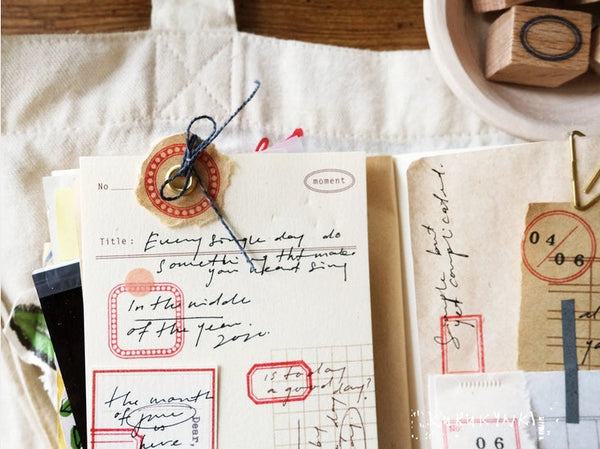 No
moment
Title: Every single day do
something tht make
you heart sing
In the middle
of the year.
2020.
is today
a good day?
the month
of june
is
here
Dear,
by day
Simple but
yet complicated.
04
06
06